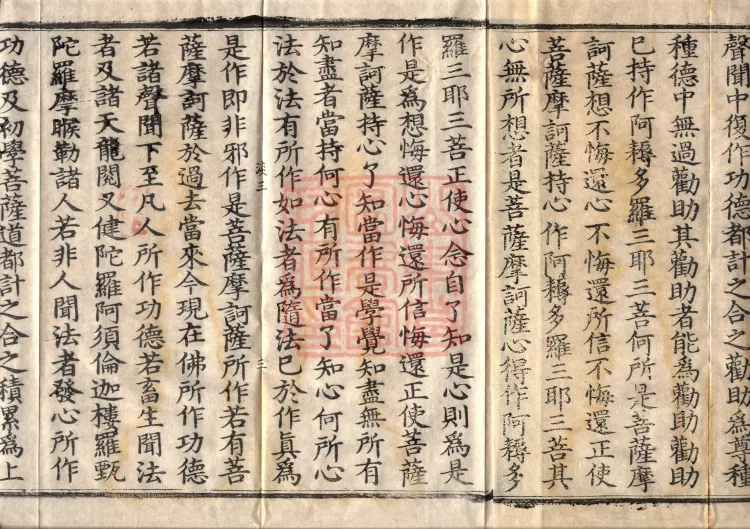 聲聞中復作功德都計之合之勸助爲尊種
種德中無過勸助其勸助者能爲勸助勸助
已持作阿耨多羅三耶三菩何所是菩薩摩
訶薩想不悔還心不悔還所信不悔還正使
菩薩摩訶薩持心作阿耨多羅三耶三菩其
心無所想者是菩薩摩訶薩心得作阿耨多
羅三耶三菩正使心念自了知是心則爲是
作是爲想悔還心悔還所信悔還正使菩薩
摩訶薩持心了知當作是學覺知盡無所有
知盡者當持何心有所作當了知心何所心
法於法有所作如法者爲隨法已於作真爲
是作即非邪作是菩薩摩訶薩所作若有菩
薩摩訶薩於過去當來今現在佛所作功德
若諸聲聞下至凡人所作功德若畜生聞法
者及諸天龍閱叉健陀羅阿須倫迦樓羅甄
陀羅摩睺勒諸人若非人聞法者發心所作
功德及初學菩薩道都計之合之積累爲上